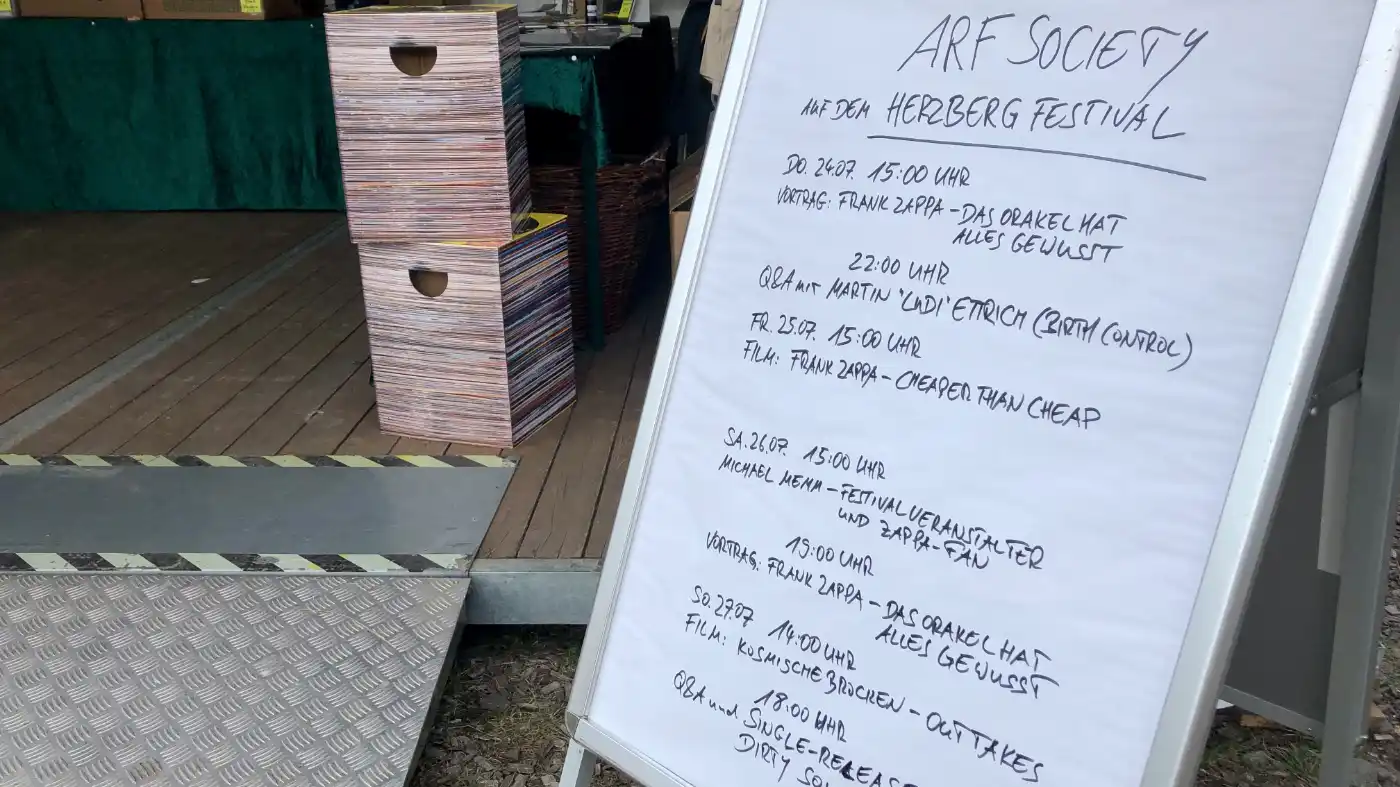 ARF SOCIETY
AUF DEM HERZBERG FESTIVAL
DO. 24.07. 15:00 UHR
VORTRAG: FRANK ZAPPA - DAS ORAKEL HAT
ALLES GEWUSST
22:00 UHR
Q&A mit MARTIN 'LUDI' ETTRICH (BIRTH CONTROL)
FR. 25.07. 15:00 UHR
FILM: FRANK ZAPPA - CHEAPER THAN CHEAP
SA. 26.07. 15:00 UHR
MICHAEL MEMM - FESTIVALVERANSTALTER
UND ZAPPA-FAN
19:00 UHR
VORTRAG: FRANK ZAPPA - DAS ORAKEL HAT
ALLES GEWUSST
SO. 27.07 14:00 UHR
FILM: KOSMISCHE BROCKEN - OUTTAKES
18:00 UHR
Q&A und SINGLE-RELEASE
DIRTY